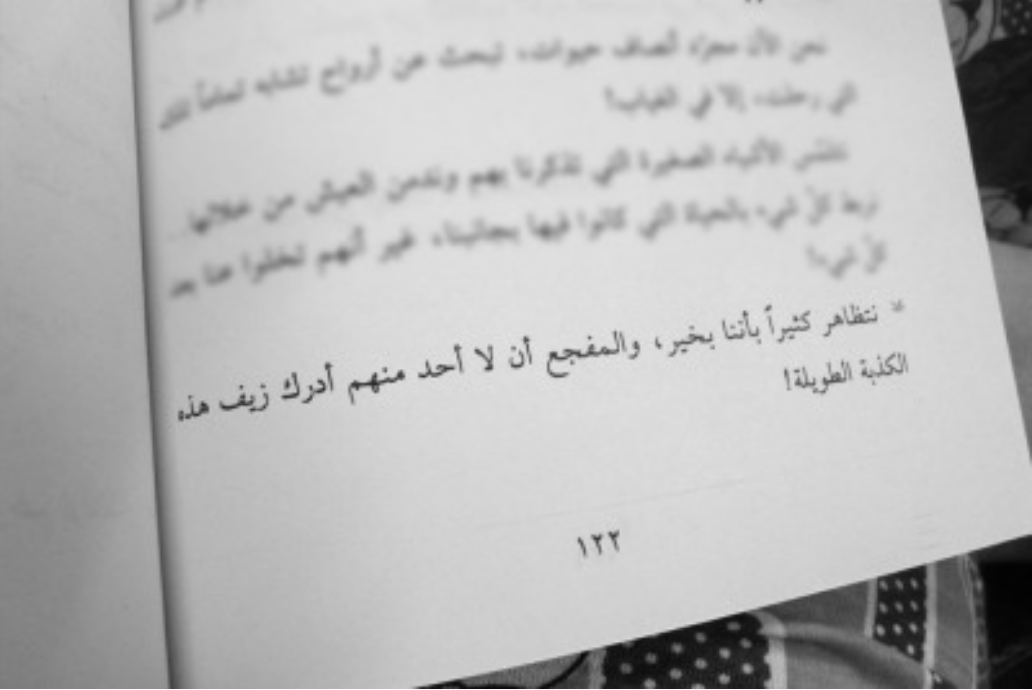 نحن الآن مجرّد أنصاف حيوات، تبحث عن أرواح تشابه تماماً تلك
التي رحلت، إلا في الغياب؟
نلتمّس الأشياء الصغيرة التي تذكرنا بهم وندمن العيش من خلالها..
نربط كلّ شيء بالحياة التي كانوا فيها بجانبنا، غير أنهم تخلوا عنا بعد
كلّ شيء!
* نتظاهر كثيراً بأننا بخير، والمفجع أن لا أحد منهم أدرك زيف هذه
الكذبة الطويلة!
١٢٢